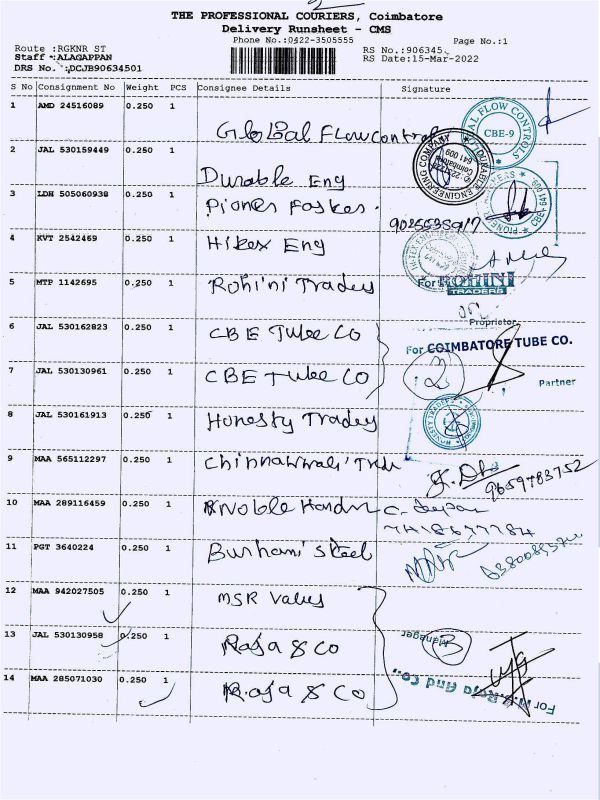 THE PROFESSIONAL COURIERS, Coimbatore
Delivery Runsheet - CMS
Phone No.:0422-3505555
Page No.:1
Route :RGKNR ST
RS No.:906345
Staff :ALAGAPPAN
RS Date:15-Mar-2022
DRS No. :DCJB90634501
S No Consignment No Weight PCS Consignee Details Signature
1 AMD 24516089 0.250 1 Global Flow control
FLOW CONTROLS CBE-9
2 JAL 530159449 0.250 1 Durable Eng
DURABLE ENGINEERING COMPANY Coimbatore 641 009
3 LDH 505060938 0.250 1
4 KVT 2542469 0.250 1 Hitex Eng
5 MTP 1142695 0.250 1 Rohini Trades
For ROHINI TRADERS
Proprietor
6 JAL 530162823 0.250 1 CBE Tube Co
For COIMBATORE TUBE CO.
7 JAL 530130961 0.250 1 CBE Tube Co
2
Partner
8 JAL 530161913 0.250 1 Honesty Trades
9 MAA 565112297 0.250 1
9659783752
10 MAA 289116459 0.250 1
11 PGT 3640224 0.250 1 Burhani Steel
12 MAA 942027505 0.250 1 MSR Values
13 JAL 530130958 0.250 1 Raja & Co
3
Manager
14 MAA 285071030 0.250 1 Raja & Co
Raja and Co.,